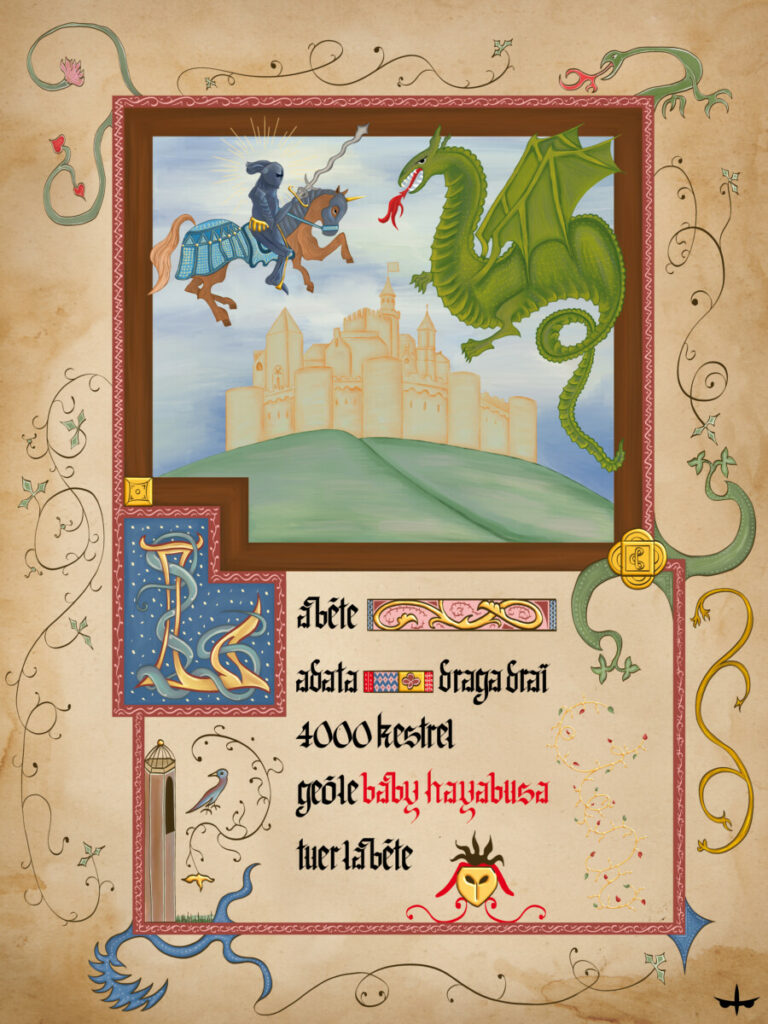 La bête
adata draga draï
4000 kestrel
geôle baby hayabusa
tuer la bête